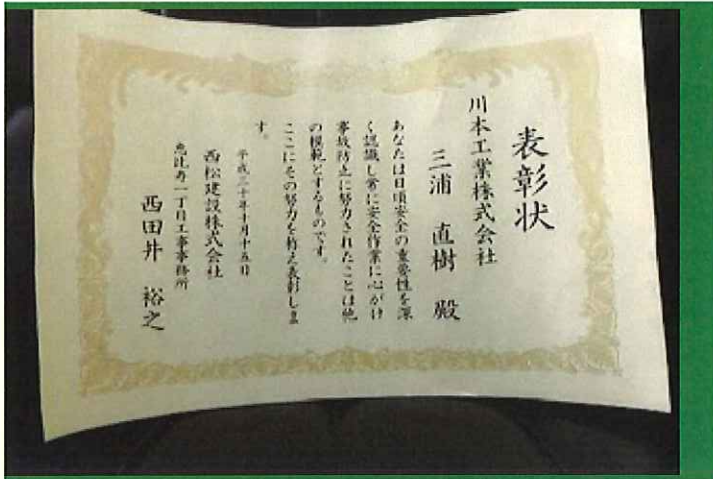 表彰状
川本工業株式会社
三浦 直樹 殿
あなたは日頃安全の重要性を深
く認識し常に安全作業に心がけ
事故防止に努力されたことは他
の模範とするものです。
ここにその努力を称え表彰しま
す。
平成三十年十月十五日
西松建設株式会社
恵比寿一丁目工事事務所
西田井 裕之